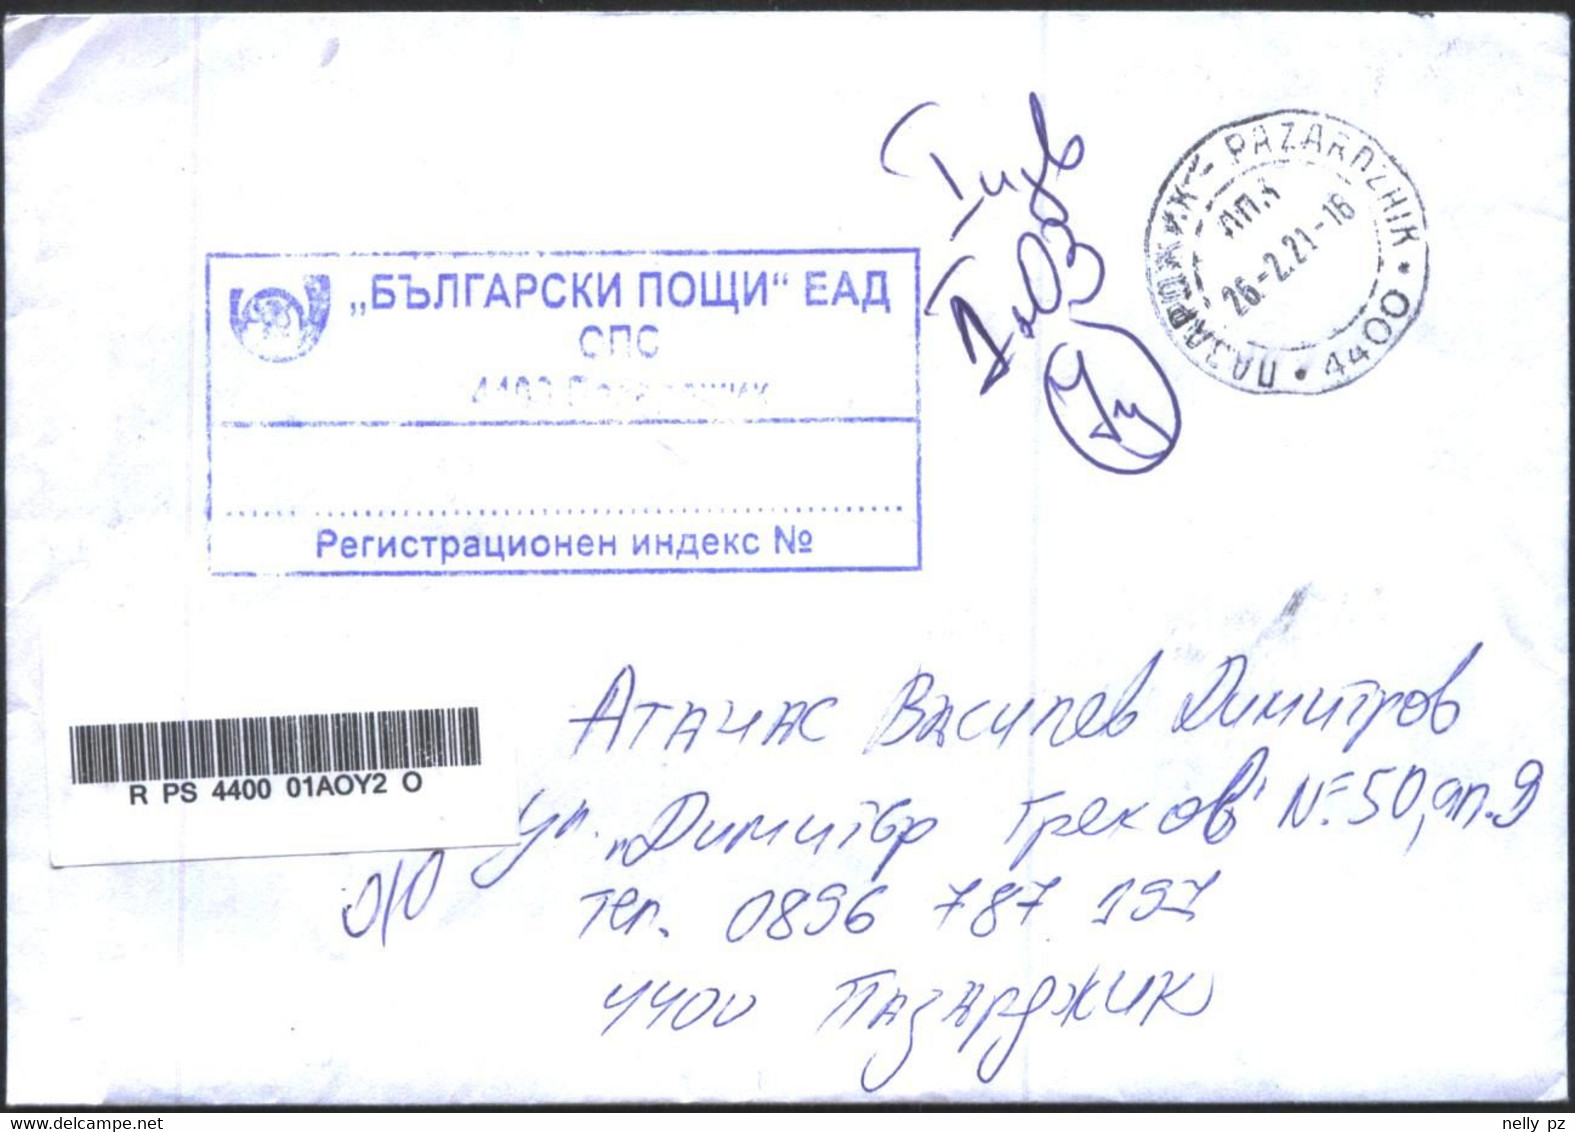 „БЪЛГАРСКИ ПОЩИ“ ЕАД
СПС
Регистрационен индекс №
ПАЗАРДЖИК - PAZARDZHIK • 4400 •
26-2.21-16
R PS 4400 01AOY2 O
Атанас Василев Димитров
ул. „Димитър Греков" № 50, ап. 9
тел. 0896 787 197
4400 Пазарджик
delcampe.net
nelly_pz